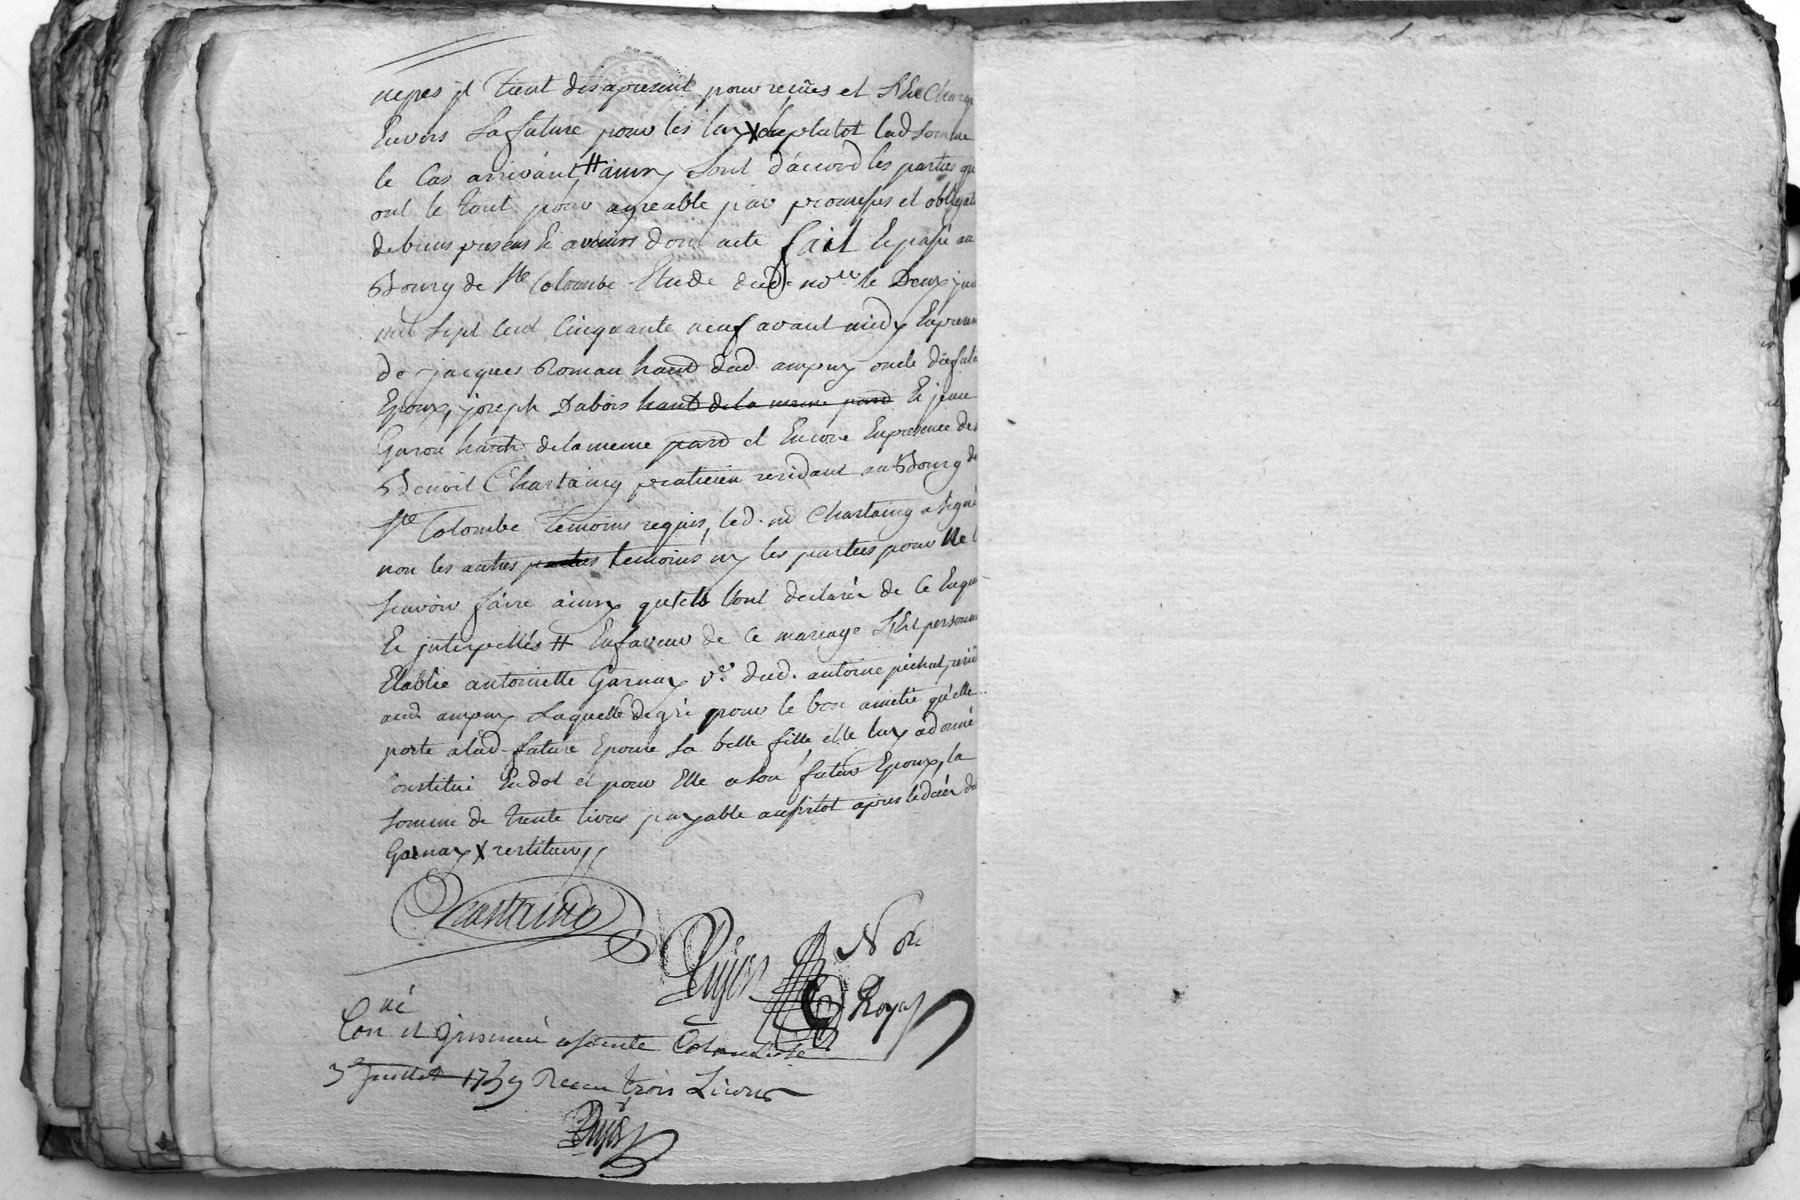 nepes jl tient desapresent pour reçües et s'En Charge
Envers la future pour les luy X ou plutot lad somme
le Cas arrivant # ainsy sont d'accord les parties qui
ont le tout pour agreable par promesses et obligat
de biens presens Et avenirs dont acte fait Et passé au
Bourg de Ste Colombe Etude dud. nore le Deux jui
mil sept cent Cinquante neuf avant midy En presen
de jacques Roman hant dud. ampuy oncle du futur
Epoux, joseph Dubois hant de la meme parr Et jean
Garon hant de la meme parr et Encore En presence de
Benoit Chartaing praticien residant au Bourg de
Ste Colombe temoins requis, led. sr Chartaing a signé
non les autres parties temoins ny les parties pour ne l
scavoir faire ainsy qu'ils l'ont declaré de ce Enquis
Et interpellés # En faveur de Ce mariage s'Est personn
Etablie antoinette Garnay ve. dud. antoine pichat, resid
aud ampuy laquelle de gré pour le bon amitié qu'elle
porte a lad. future Epouse sa belle fille elle luy a donné
Constitué En dot et pour Elle a son futur Epoux, la
somme de trente livres payable aussitot apres le décés de
Garnay X restituer
Chartaing
Dujast Nore
Royal
Con né et Jnsinué a sainte Colombe le
3e Juillet 1759 Receu trois Livres
Dujast